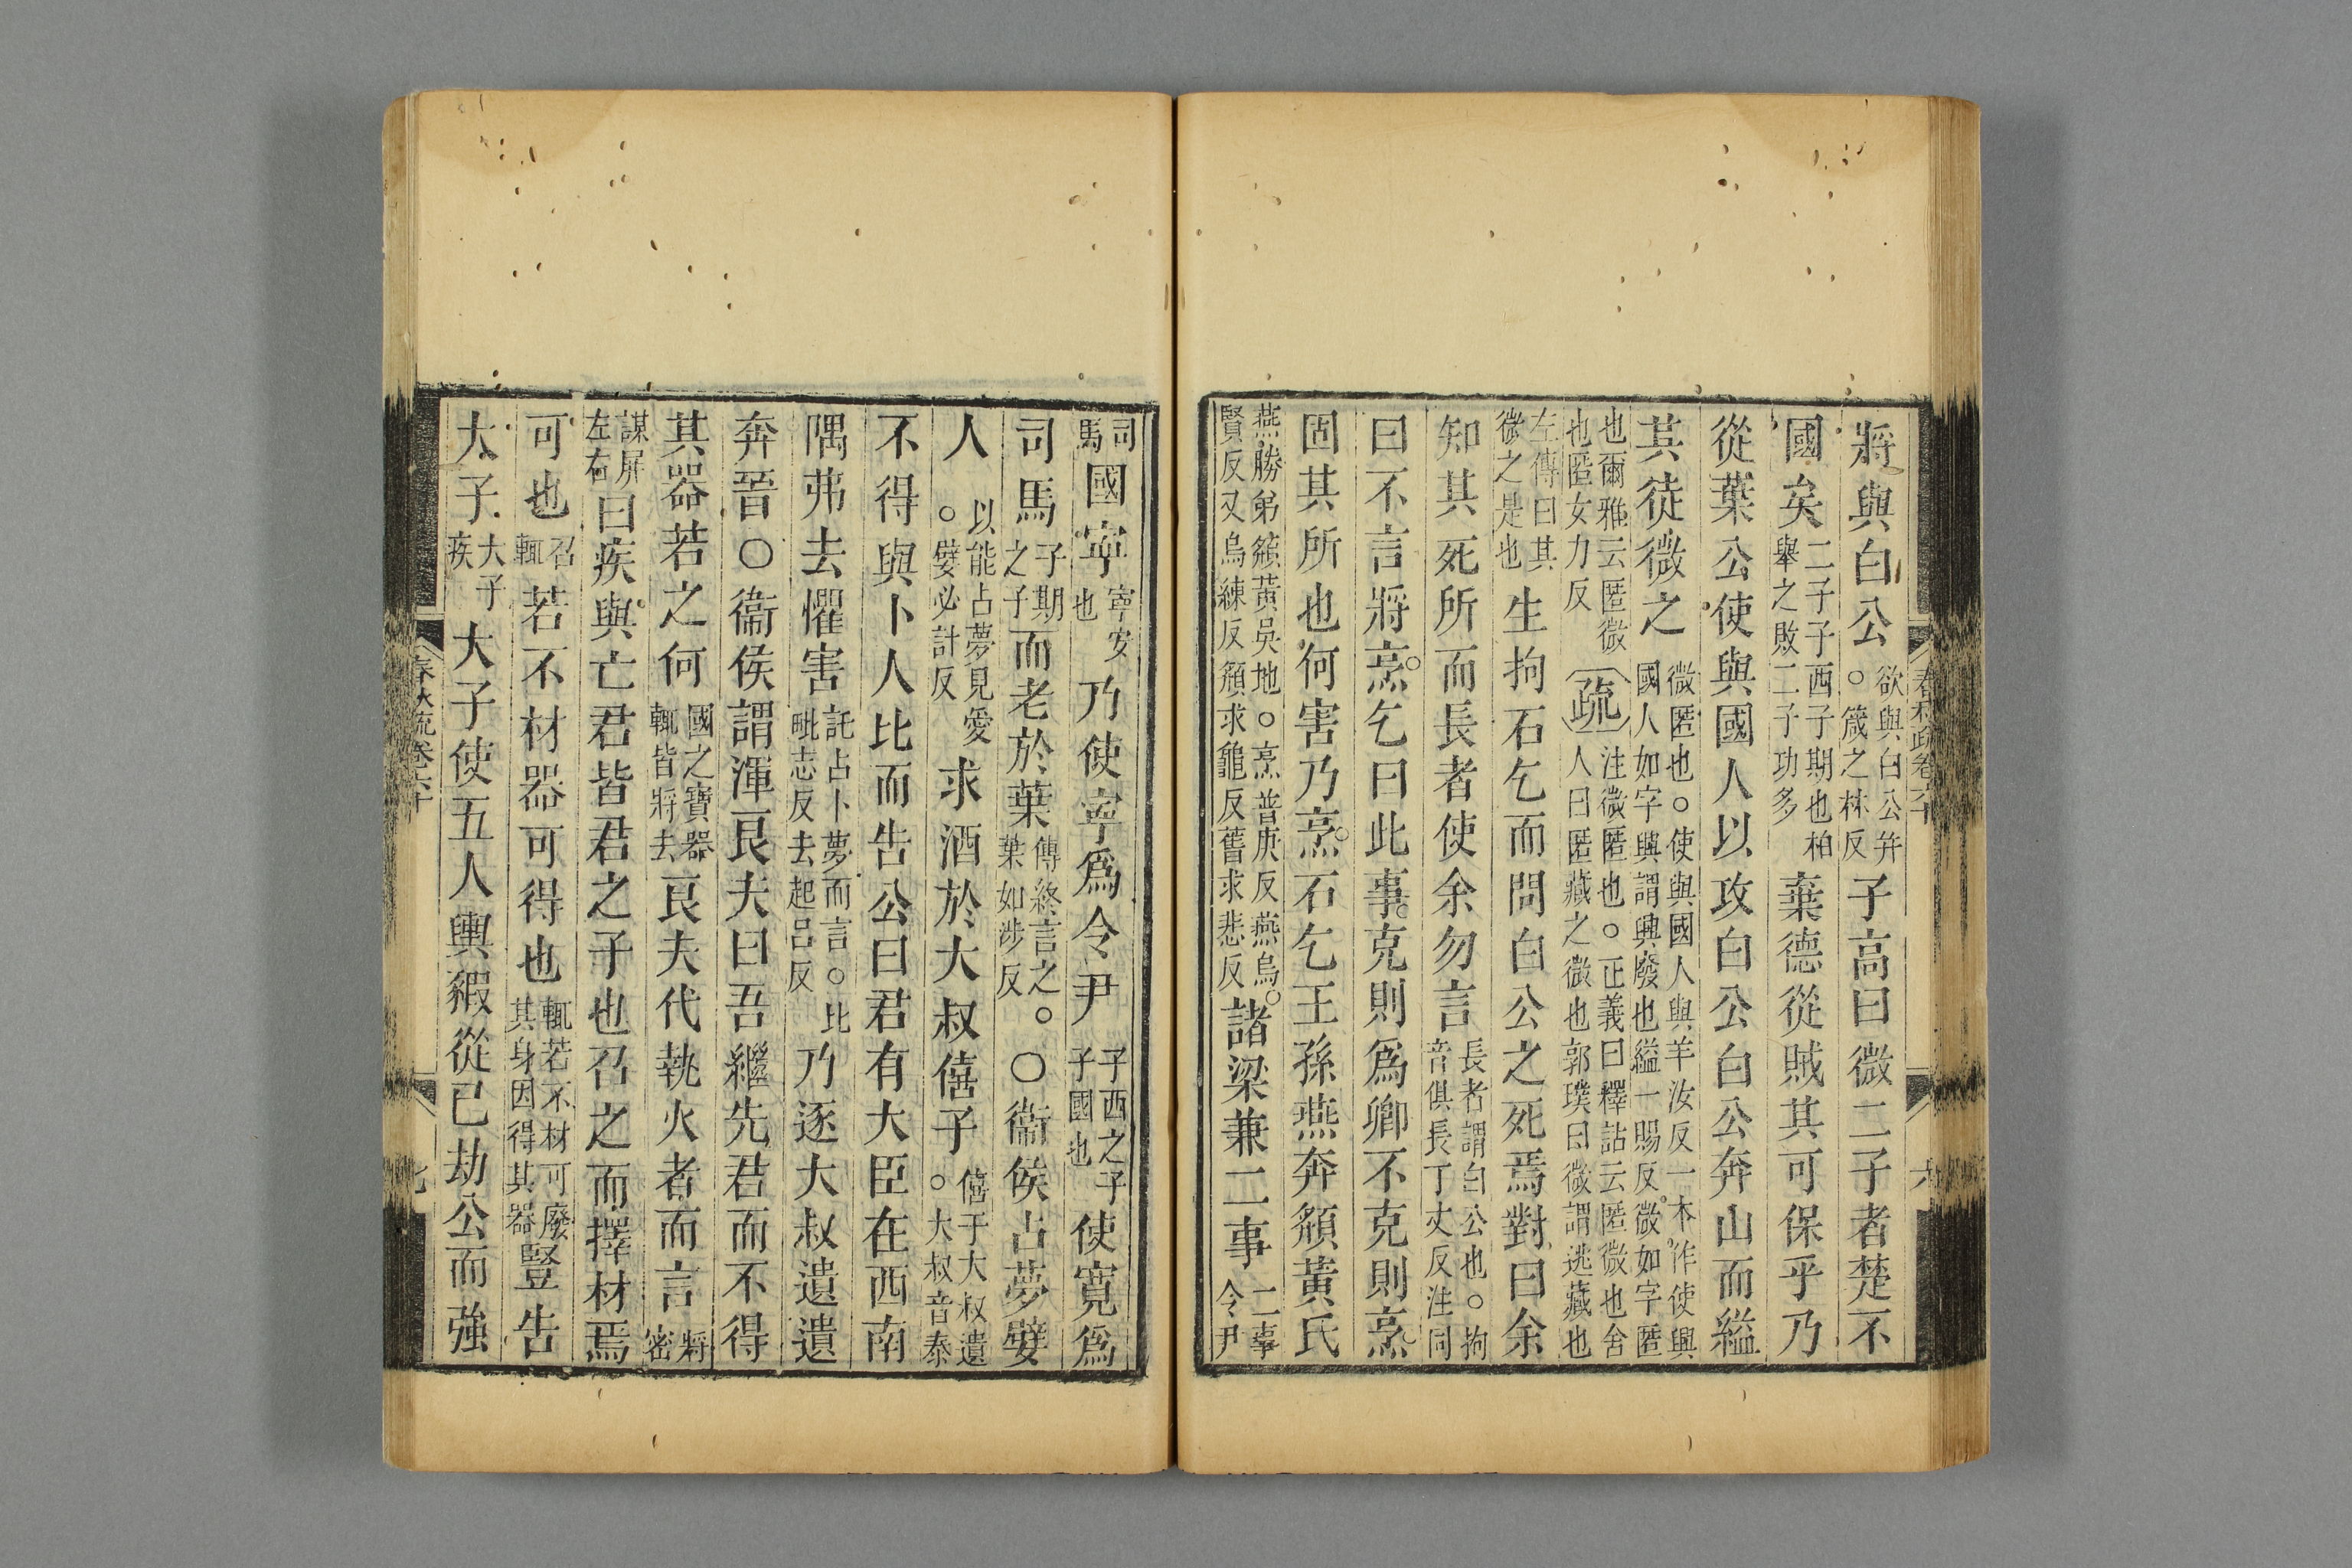 將與白公欲與白公并○箴之林反子高曰微二子者楚不
國矣二子子西子期也柏舉之敗二子功多棄德從賊其可保乎乃
從葉公使與國人以攻白公白公奔山而縊
其徒微之微匿也○使與國人與羊汝反一本作使與國人如字與謂興廢也縊一賜反微如字匿
也爾雅云匿微也匿女力反疏注微匿也○正義曰釋詁云匿微也舍人曰匿藏之微也郭璞曰微謂逃藏也
左傳曰其微之是也生拘石乞而問白公之死焉對曰余
知其死所而長者使余勿言長者謂白公也○拘音俱長丁丈反注同
曰不言將烹乞曰此事克則爲卿不克則烹
固其所也何害乃烹石乞王孫燕奔頯黃氏
燕勝弟頯黃吳地○烹普庚反燕烏賢反又烏練反頯求龜反舊求悲反諸梁兼二事二事令尹
司馬國寧寧安也乃使寧爲令尹子西之子子國也使寬爲
司馬子期之子而老於葉傳終言之○葉如涉反○衞侯占夢嬖
人以能占夢見愛○嬖必計反求酒於大叔僖子僖子大叔遺○大叔音泰
不得與卜人比而告公曰君有大臣在西南
隅弗去懼害託占卜夢而言○比毗志反去起呂反乃逐大叔遺遺
奔晉○衞侯謂渾良夫曰吾繼先君而不得
其器若之何國之寶器輒皆將去良夫代執火者而言將密
謀屏左右曰疾與亡君皆君之子也召之而擇材焉
可也召輒若不材器可得也輒若不材可廢其身因得其器豎告
大子大子疾大子使五人輿豭從己劫公而強
春秋疏卷六十
春秋疏卷六十